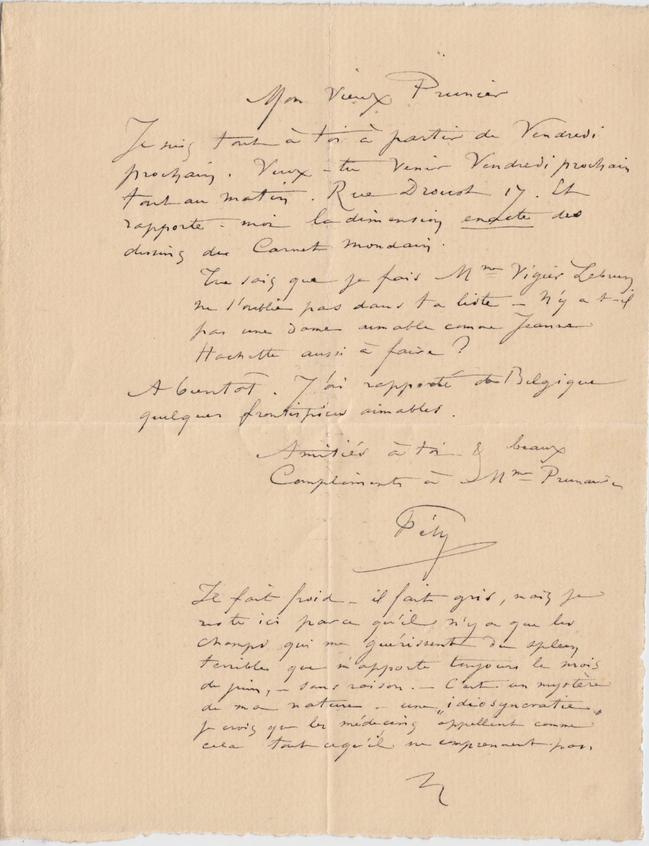 Mon Vieux Prunier
Je suis tout à toi à partir de Vendredi
prochain. Veux-tu venir Vendredi prochain
tout au matin. Rue Drouot 17. Et
rapporte-moi la dimension exacte des
dessins du Carnet mondain.
Tu sais que je fais Mme Vigier Lebrun
ne l'oublie pas dans ta liste - n'y a t-il
pas une dame aimable comme Jeanne
Hachette aussi à faire ?
A bientôt. J'ai rapporté de Belgique
quelques frontispices aimables.
Amitiés à toi & beaux
Compliments à Mme Prunier
Fély
Il fait froid - il fait gris, mais je
reste ici parce qu'il n'y a que les
champs qui me guérissent du spleen
terrible que m'apporte toujours le mois
de juin, - sans raison. - C'est un mystère
de ma nature - une "idiosyncratie"
je crois que les médecins appellent comme
cela tout ce qu'il ne comprennent pas.